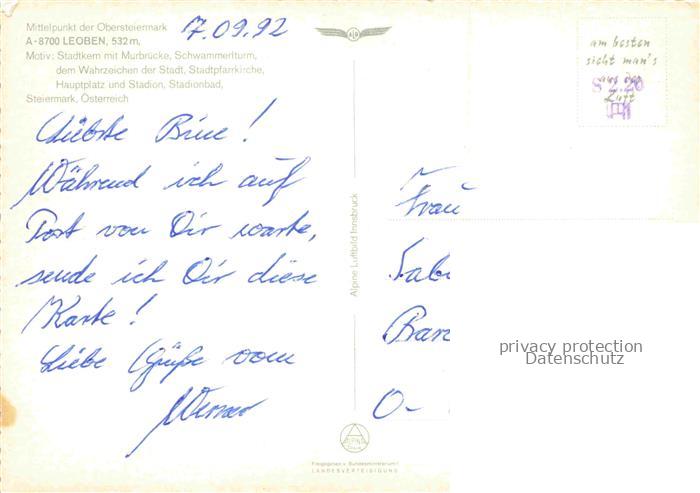 Mittelpunkt der Obersteiermark
A-8700 LEOBEN, 532 m,
Motiv: Stadtkern mit Murbrücke, Schwammerlturm,
dem Wahrzeichen der Stadt, Stadtpfarrkirche,
Hauptplatz und Stadion, Stadionbad,
Steiermark, Österreich
7.09.92
Liebste Bine!
Während ich auf
Post von Dir warte,
sende ich Dir diese
Karte!
Liebe Grüße vom
Werner
Alpine Luftbild Innsbruck
am besten
sieht man's
aus der
Luft
S 2.20
Frau
Sabi
Bar
O-
privacy protection
Datenschutz
ALPINE
Freigegeben v. Bundesministerium f.
LANDESVERTEIDIGUNG